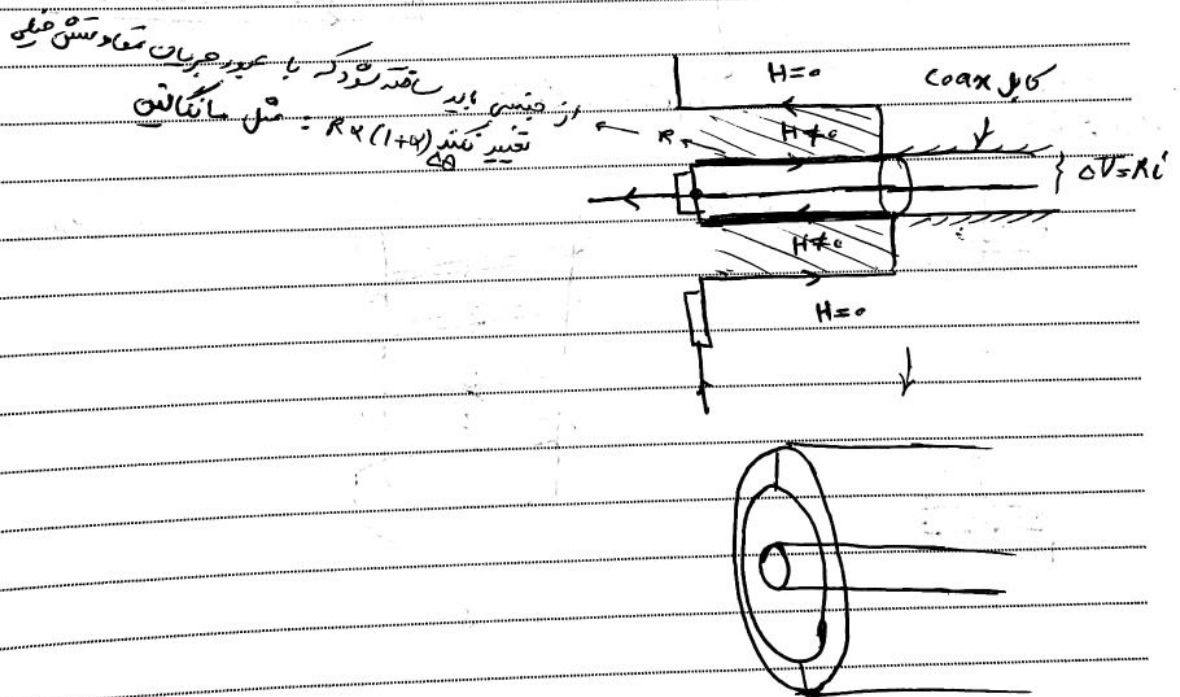 از جنسی باید ساخته شود که با عبور جریان مقاومتش خیلی
تغییر نکند R∝(1+αΔθ) : مثل مانگانین
R
H=0
کابل coax
H≠0
ΔV=Ri
H≠0
H=0